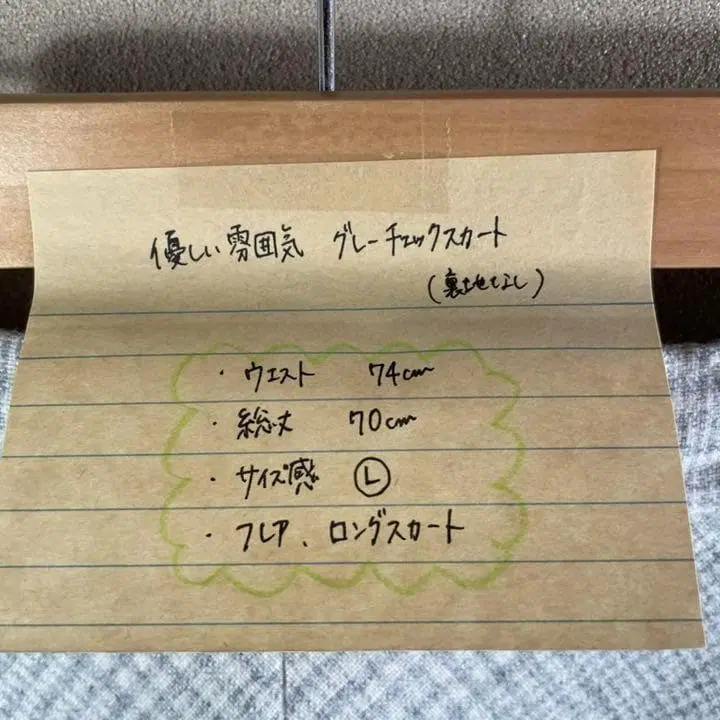 優しい雰囲気 グレーチェックスカート
(裏地なし)
・ウエスト 74cm
・総丈 70cm
・サイズ感 Ⓛ
・フレア、ロングスカート